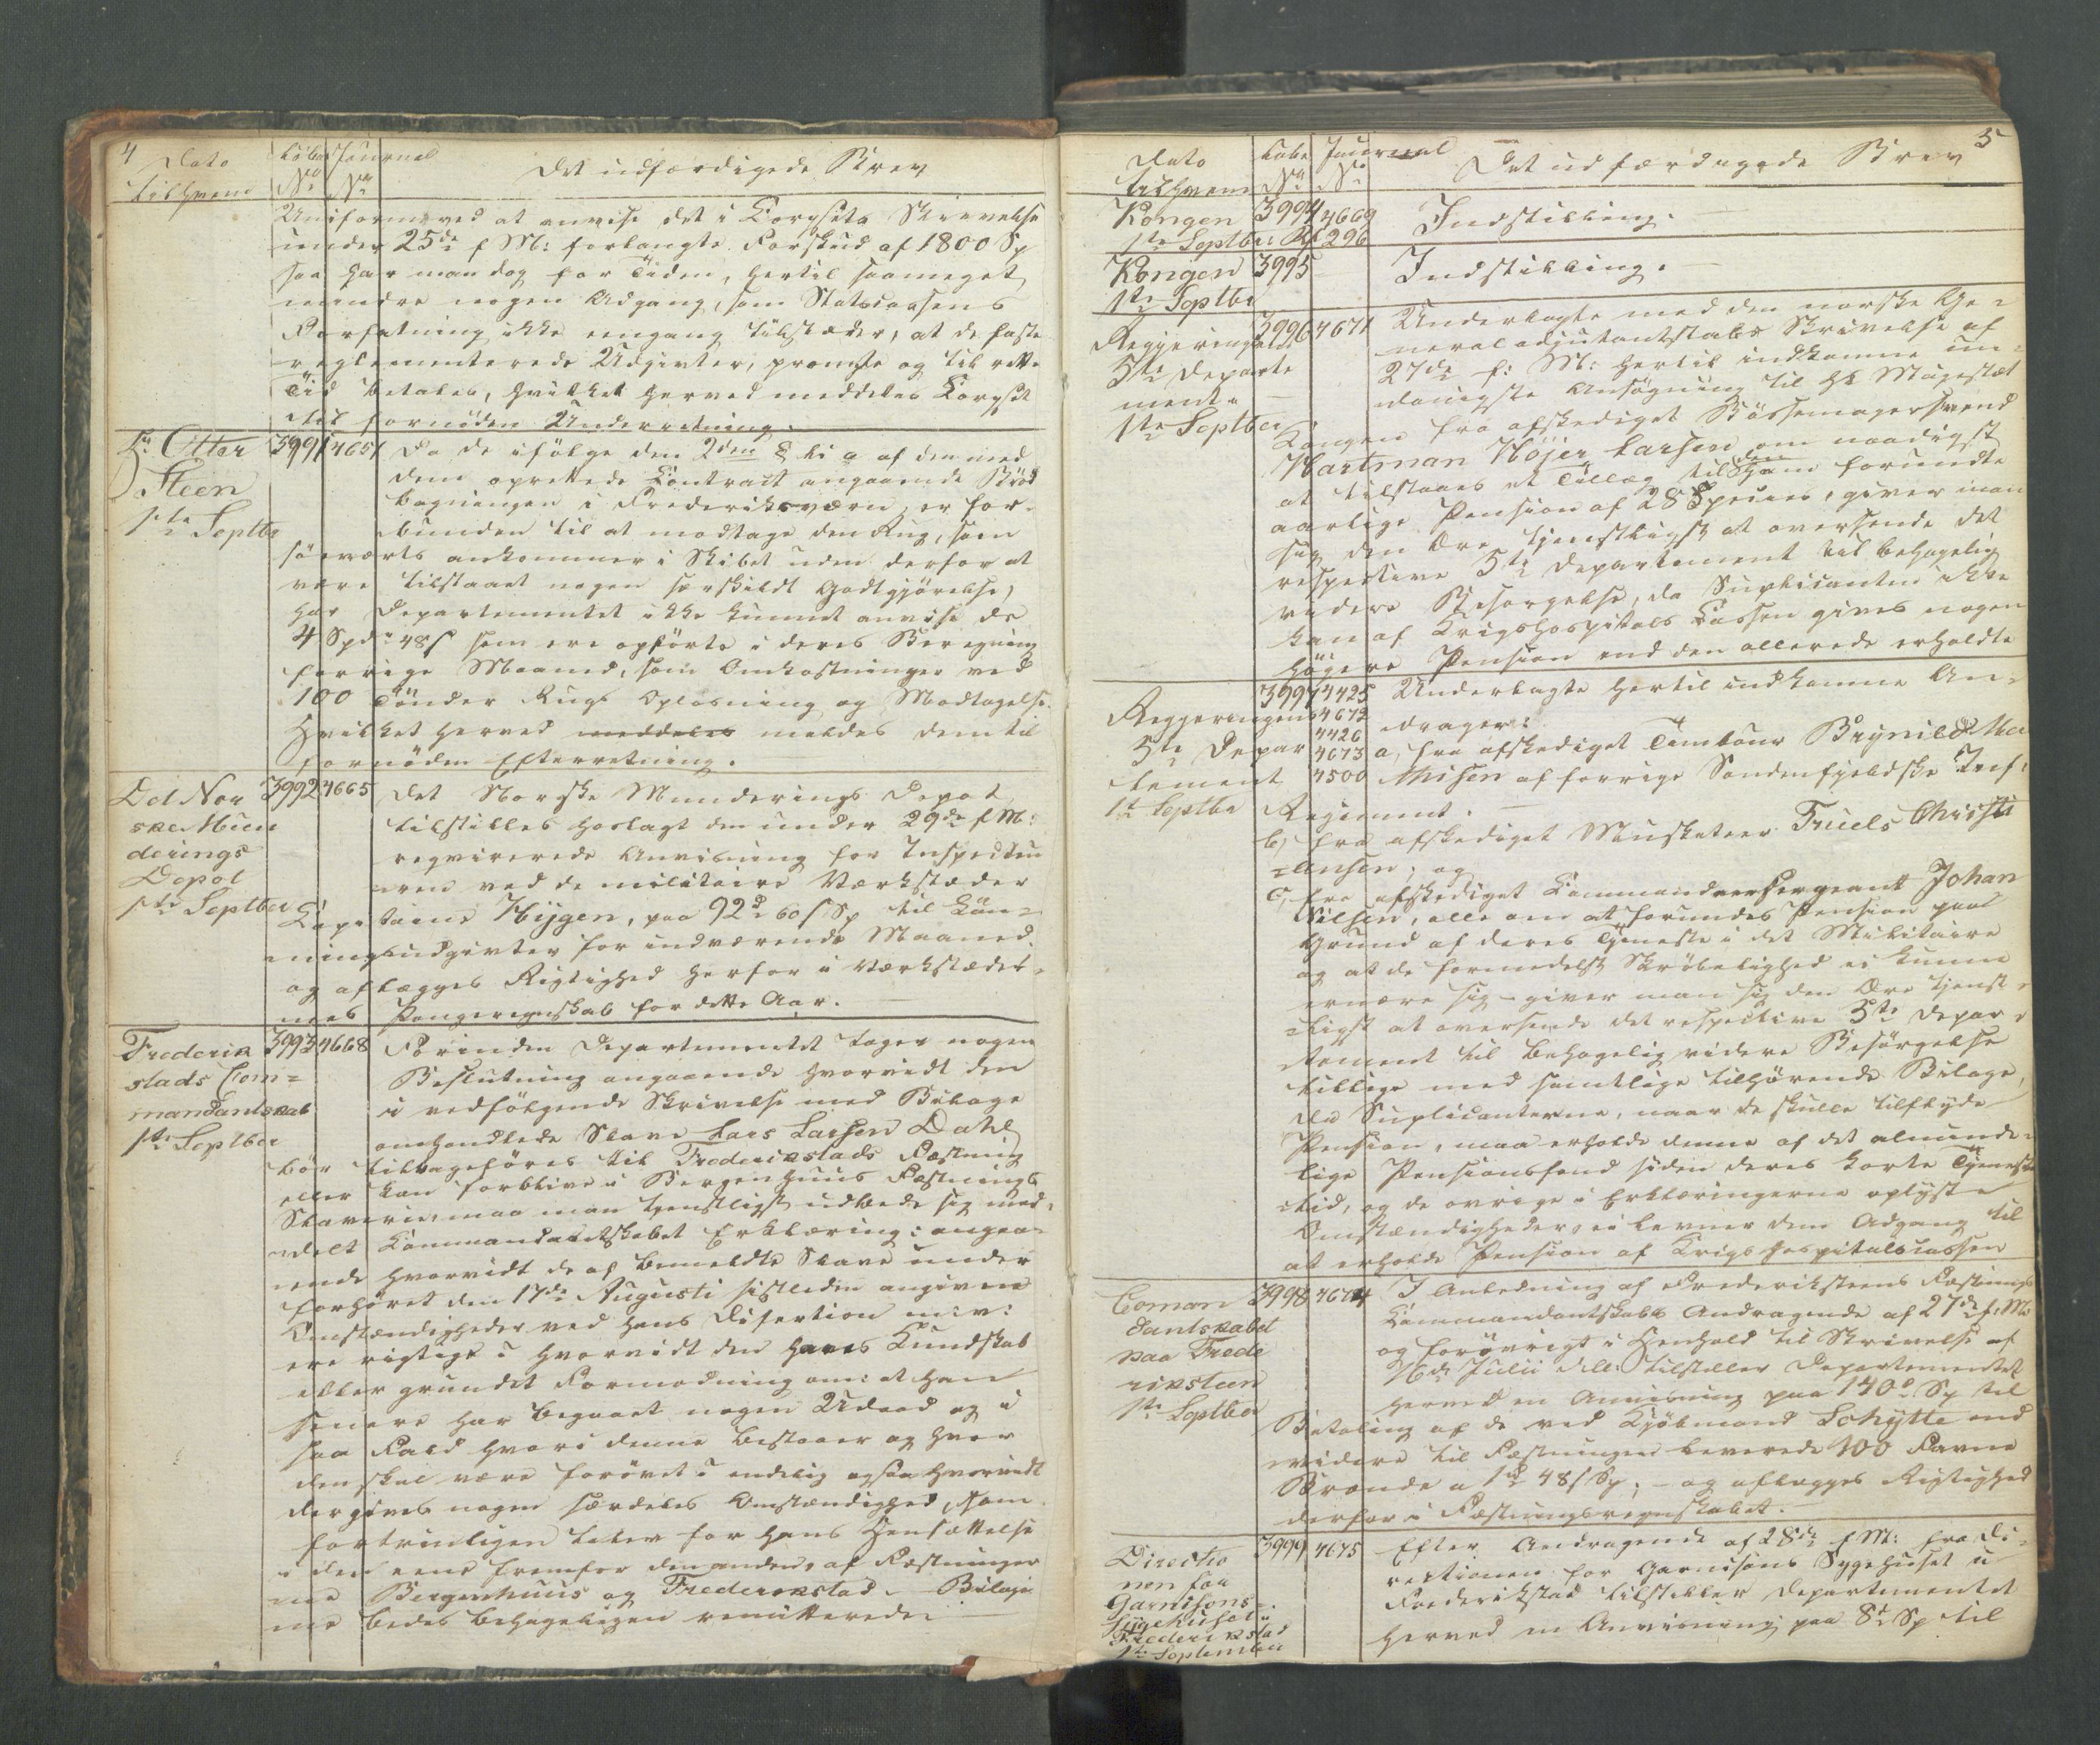 4
Dato
Løbe
Journal
Det udfærdigede Brev
til hvem
No
No
Uniformer ved at anvise det i Corpsets Skrivelse
under 25de f M: forlangte Forskud af 1800 Sp
saa har man dog for Tiden, hertil saameget
mindre nogen Adgang, som Statscassens
Forfatning ikke eengang tilsteder, at de faste
reglementerede Udgivter, prompte og til rette
Tid betales, hvilket herved meddeles Corpset
til fornöden Underretning.
Otter
Steen
1ste Septbr
3991
4651
Da de ifølge den 2den § Li a af den med
dem oprettede Contract angaaende Bröd
bagningen i Frederiksværn, er for-
bunden til at modtage den Rug, som
söeværts ankommer i Skibet uden derfor at
være tilstaaet nogen særskildt Godtgjörelse,
har Departementet ikke kunnet anvise de
4 Spdr 48 s som ere opförte i deres Beregning
forrige Maaned, som Omkostninger ved
100 Tönder Rugs Oplosning og Modtagelse.
Hvilket herved meddeles meldes dem til
fornöden Efterretning.
Det Nor
ske Mun
derings
Depot
1ste Septber
3992
4665
Det Norske Munderings Depot
tilstilles hoslagt den under 29de f M:
reqvirerede Anvisning for Inspecteu
ren ved de militaire Værksteder
Capitaine Hÿgen, paa 92d 60 s Sp til Løn-
ningsudgivter for indeværende Maaned
og aflægges Rigtighed herfor i Værkstedet-
nes Pengeregnskab for dette Aar.
Frederik
stads Com=
mandantskab
1ste Septber
3993
4668
Forinden Departementet tager nogen
Beslutning angaaende hvorvidt den
i vedfölgende Skrivelse med Bilage
omhandlede Slave Lars Larsen Dahl
bör tilbageföres til Frederikstads Fæstning
eller kan forblive i Bergenhuus Fæstnings
Slaverie, maa man tjenstligst udbede sig med-
deelt Commandantskabet Erklæring: angaa-
ende hvorvidt de af bemeldte Slave under
Forhöret den 17de Augusti sistleden angivne
Omstændigheder ved hans Desertion m: v:
ere rigtige i hvorvidt den haves Kundskab
eller grundet Formodning om: at han
senere har begaaet nogen Udaad og i
saa Fald hvori denne bestaaer og hvor
den skal være forövet i endelig ogsaa hvorvidt
der gives nogen særdeles Omstændighed, som
fortrinligen taler for hans Hensættelse
i den eene fremfor den anden, af Fæstninger
ne Bergenhuus og Frederikstad. Bilage
ne bedes behageligen remitterede.
5
Dato
Løbe
Journal
Det udfærdigede Brev
til hvem
No
No
Kongen
1ste Septber
3994
4669
296
Indstilling.
Kongen
1ste Septbr
3995
Indstilling.
Regjeringens
5te Departe
ment
1ste Septber
3996
4671
Underlagte med den norske Ge=
neraladjutantstabs Skrivelse af
27de f: M: hertil indkomne un=
danigste Ansögning til Hs Majestæt
Kongen fra afskediget Bössemagersvend
Hartman Höjer Larsen om naadigst
at tilstaaes et Tillæg til den ham forundte
aarlige Pension af 28 Species, giver man
sig den Ære tjenstligst at oversende det
respective 5te Departement til behagelig
videre Besorgelse, da Suplicanten ikke
kan af Krigshospitals Cassen gives nogen
högere Pension end den allerede erholdte
Regjeringens
5te Depar
tement
1ste Septbr
3997
4425
4672
4426
4673
4500
Underlagte hertil indkomne An=
drager:
a, fra afskediget Tambour Brÿnild Ma
thisen af forrige Søndenfjeldske Inf:
Regiment.
b, fra afskediget Musketeer Truels Christi
=ansen, og
c, fra afskediget Commandeersergeant Johan
Nilsen, alle om at forundes Pension paa
Grund af deres Tjeneste i det Militaire
og at de formedelst Skröbelighed ei kunne
ernære sig - giver man sig den Ære tjenst-
ligst at oversende det respective 5te Depar-
tement til behagelig videre Besörgelse
tillige med samtlige tilhörende Bilage,
da Suplicanterne, naar de skulle tilflyde
Pension, maa erholde denne af det alminde-
lige Pensionsfond siden deres korte Tjeneste
tid, og de övrige i Erklæringerne oplyste
Omstændigheder, ei levner dem Adgang til
at erholde Pension af Krigshospitalscassen
Coman
dantskabet
paa Frede
riksteen
1ste Septber
3998
4674
I Anledning af Frederiksteens Fæstnings
Commandantskabs Andragende af 27de f: M:
og forövrigt i Henhold til Skrivelse af
16de Julii d: A: tilstiller Departementet
herved en Anvisning paa 140d Sp til
Betaling af de ved Kjöbmand Schÿtte end
videre til Fæstningen leverede 100 Favne
Brænde a 1d 48 s Sp, - og aflægges Rigtighed
derfor i Fæstningsregnskabet.
Directio
nen for
Garnisons
Sygehuset i
Frederikstad
1ste September
3999
4675
Efter Andragende af 28de f M: fra Di=
rectionen for Garnisons Sygehuset i
Frederikstad tilstiller Departementet
herved en Anvisning paa 8d Sp til